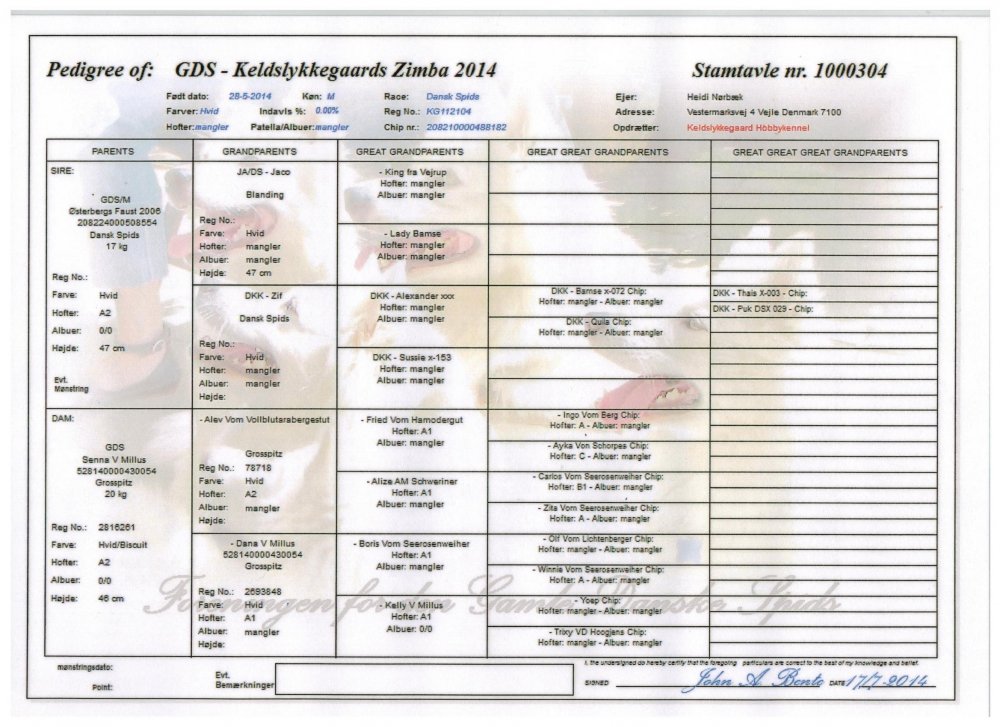 Pedigree of: GDS - Keldslykkegaards Zimba 2014 Stamtavle nr. 1000304
Født dato: 28-5-2014 Køn: M Race: Dansk Spids Ejer: Heidi Nørbæk
Farver: Hvid Indavls %: 0.00% Reg No.: KG112104 Adresse: Vestermarksvej 4 Vejle Denmark 7100
Hofter: mangler Patella/Albuer: mangler Chip nr.: 208210000488182 Opdrætter: Keldslykkegaard Hobbykennel
PARENTS GRANDPARENTS GREAT GRANDPARENTS GREAT GREAT GRANDPARENTS GREAT GREAT GREAT GRANDPARENTS
SIRE:
GDS/M
Østerbergs Faust 2006
208224000508554
Dansk Spids
17 kg
Reg No.:
Farve: Hvid
Hofter: A2
Albuer: 0/0
Højde: 47 cm
Evt.
Mønstring
DAM:
GDS
Senna V Millus
528140000430054
Grosspitz
20 kg
Reg No.: 2816261
Farve: Hvid/Biscuit
Hofter: A2
Albuer: 0/0
Højde: 46 cm
JA/DS - Jaco
Blanding
Reg No.:
Farve: Hvid
Hofter: mangler
Albuer: mangler
Højde: 47 cm
DKK - Zif
Dansk Spids
Reg No.:
Farve: Hvid
Hofter: mangler
Albuer: mangler
Højde:
- Alev Vom Vollblutarabergestut
Grosspitz
Reg No.: 78718
Farve: Hvid
Hofter: A2
Albuer: mangler
Højde:
- Dana V Millus
528140000430054
Grosspitz
Reg No.: 2693848
Farve: Hvid
Hofter: A1
Albuer: mangler
Højde:
- King fra Vejrup
Hofter: mangler
Albuer: mangler
- Lady Bamse
Hofter: mangler
Albuer: mangler
DKK - Alexander xxx
Hofter: mangler
Albuer: mangler
DKK - Sussie x-153
Hofter: mangler
Albuer: mangler
- Fried Vom Hamodergut
Hofter: A1
Albuer: mangler
- Alize AM Schweriner
Hofter: A1
Albuer: mangler
- Boris Vom Seerosenweiher
Hofter: A1
Albuer: mangler
- Kelly V Millus
Hofter: A1
Albuer: 0/0
DKK - Bamse x-072 Chip:
Hofter: mangler - Albuer: mangler
DKK - Quila Chip:
Hofter: mangler - Albuer: mangler
- Ingo Vom Berg Chip:
Hofter: A - Albuer: mangler
- Ayka Von Schorpes Chip:
Hofter: C - Albuer: mangler
- Carlos Vom Seerosenweiher Chip:
Hofter: B1 - Albuer: mangler
- Zita Vom Seerosenweiher Chip:
Hofter: A - Albuer: mangler
- Olf Vom Lichtenberger Chip:
Hofter: mangler - Albuer: mangler
- Winnie Vom Seerosenweiher Chip:
Hofter: A - Albuer: mangler
- Yoep Chip:
Hofter: mangler - Albuer: mangler
- Trixy VD Hoogjens Chip:
Hofter: mangler - Albuer: mangler
DKK - Thais X-003 - Chip:
DKK - Puk DSX 029 - Chip:
Foreningen for den Gamle Danske Spids
mønstringsdato:
Point:
Evt.
Bemærkninger
I, the undersigned do hereby certify that the foregoing particulars are correct to the best of my knowledge and belief.
SIGNED John A. Bento DATE 17/7-2014